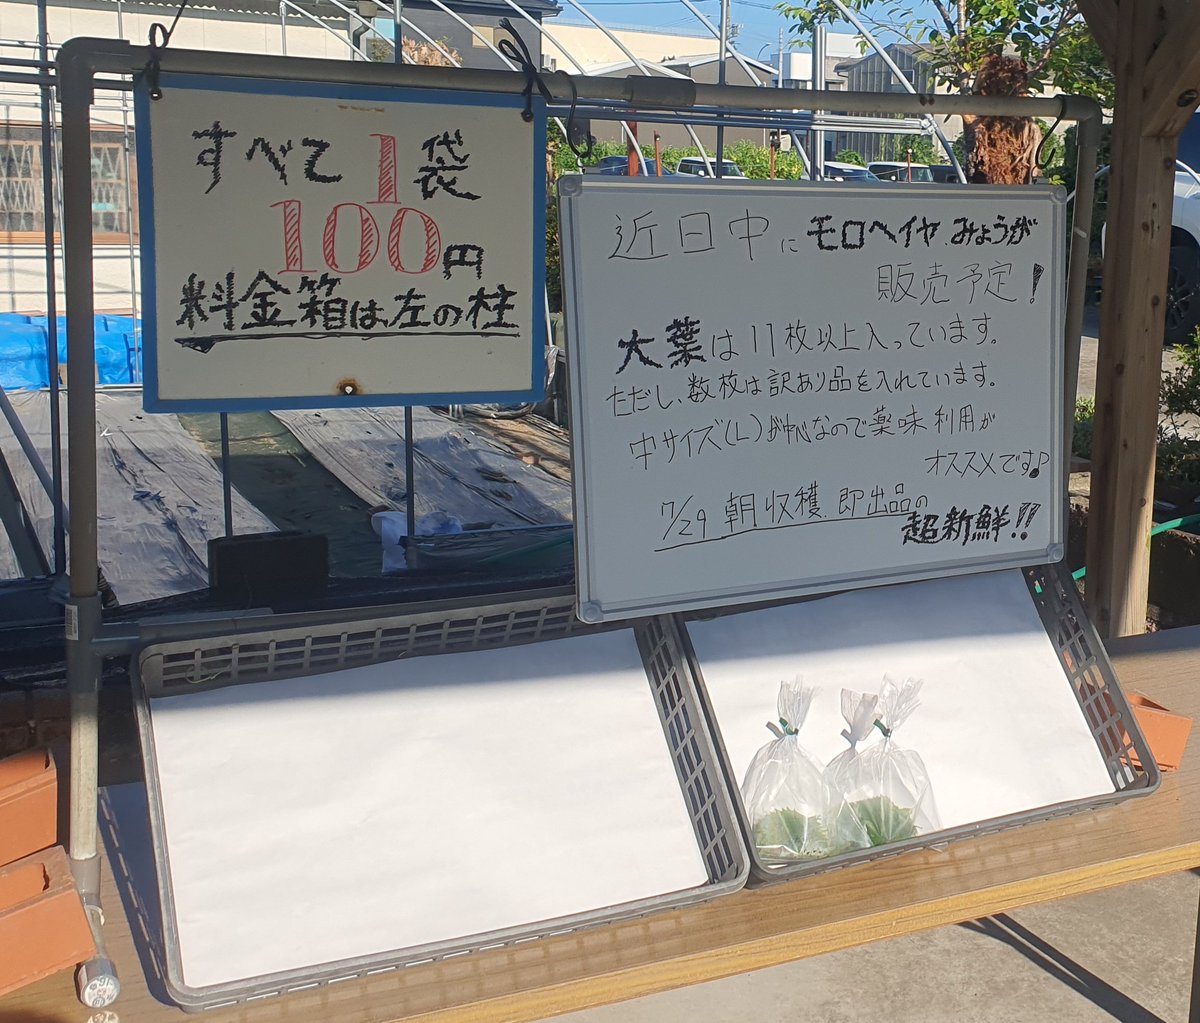 すべて1袋
100円
料金箱は左の柱
近日中にモロヘイヤ、みょうが
販売予定!
大葉は11枚以上入っています。
ただし、数枚は訳あり品を入れています。
中サイズ(L)が中心なので薬味利用が
オススメです♪
7/29 朝収穫、即出品の
超新鮮!!